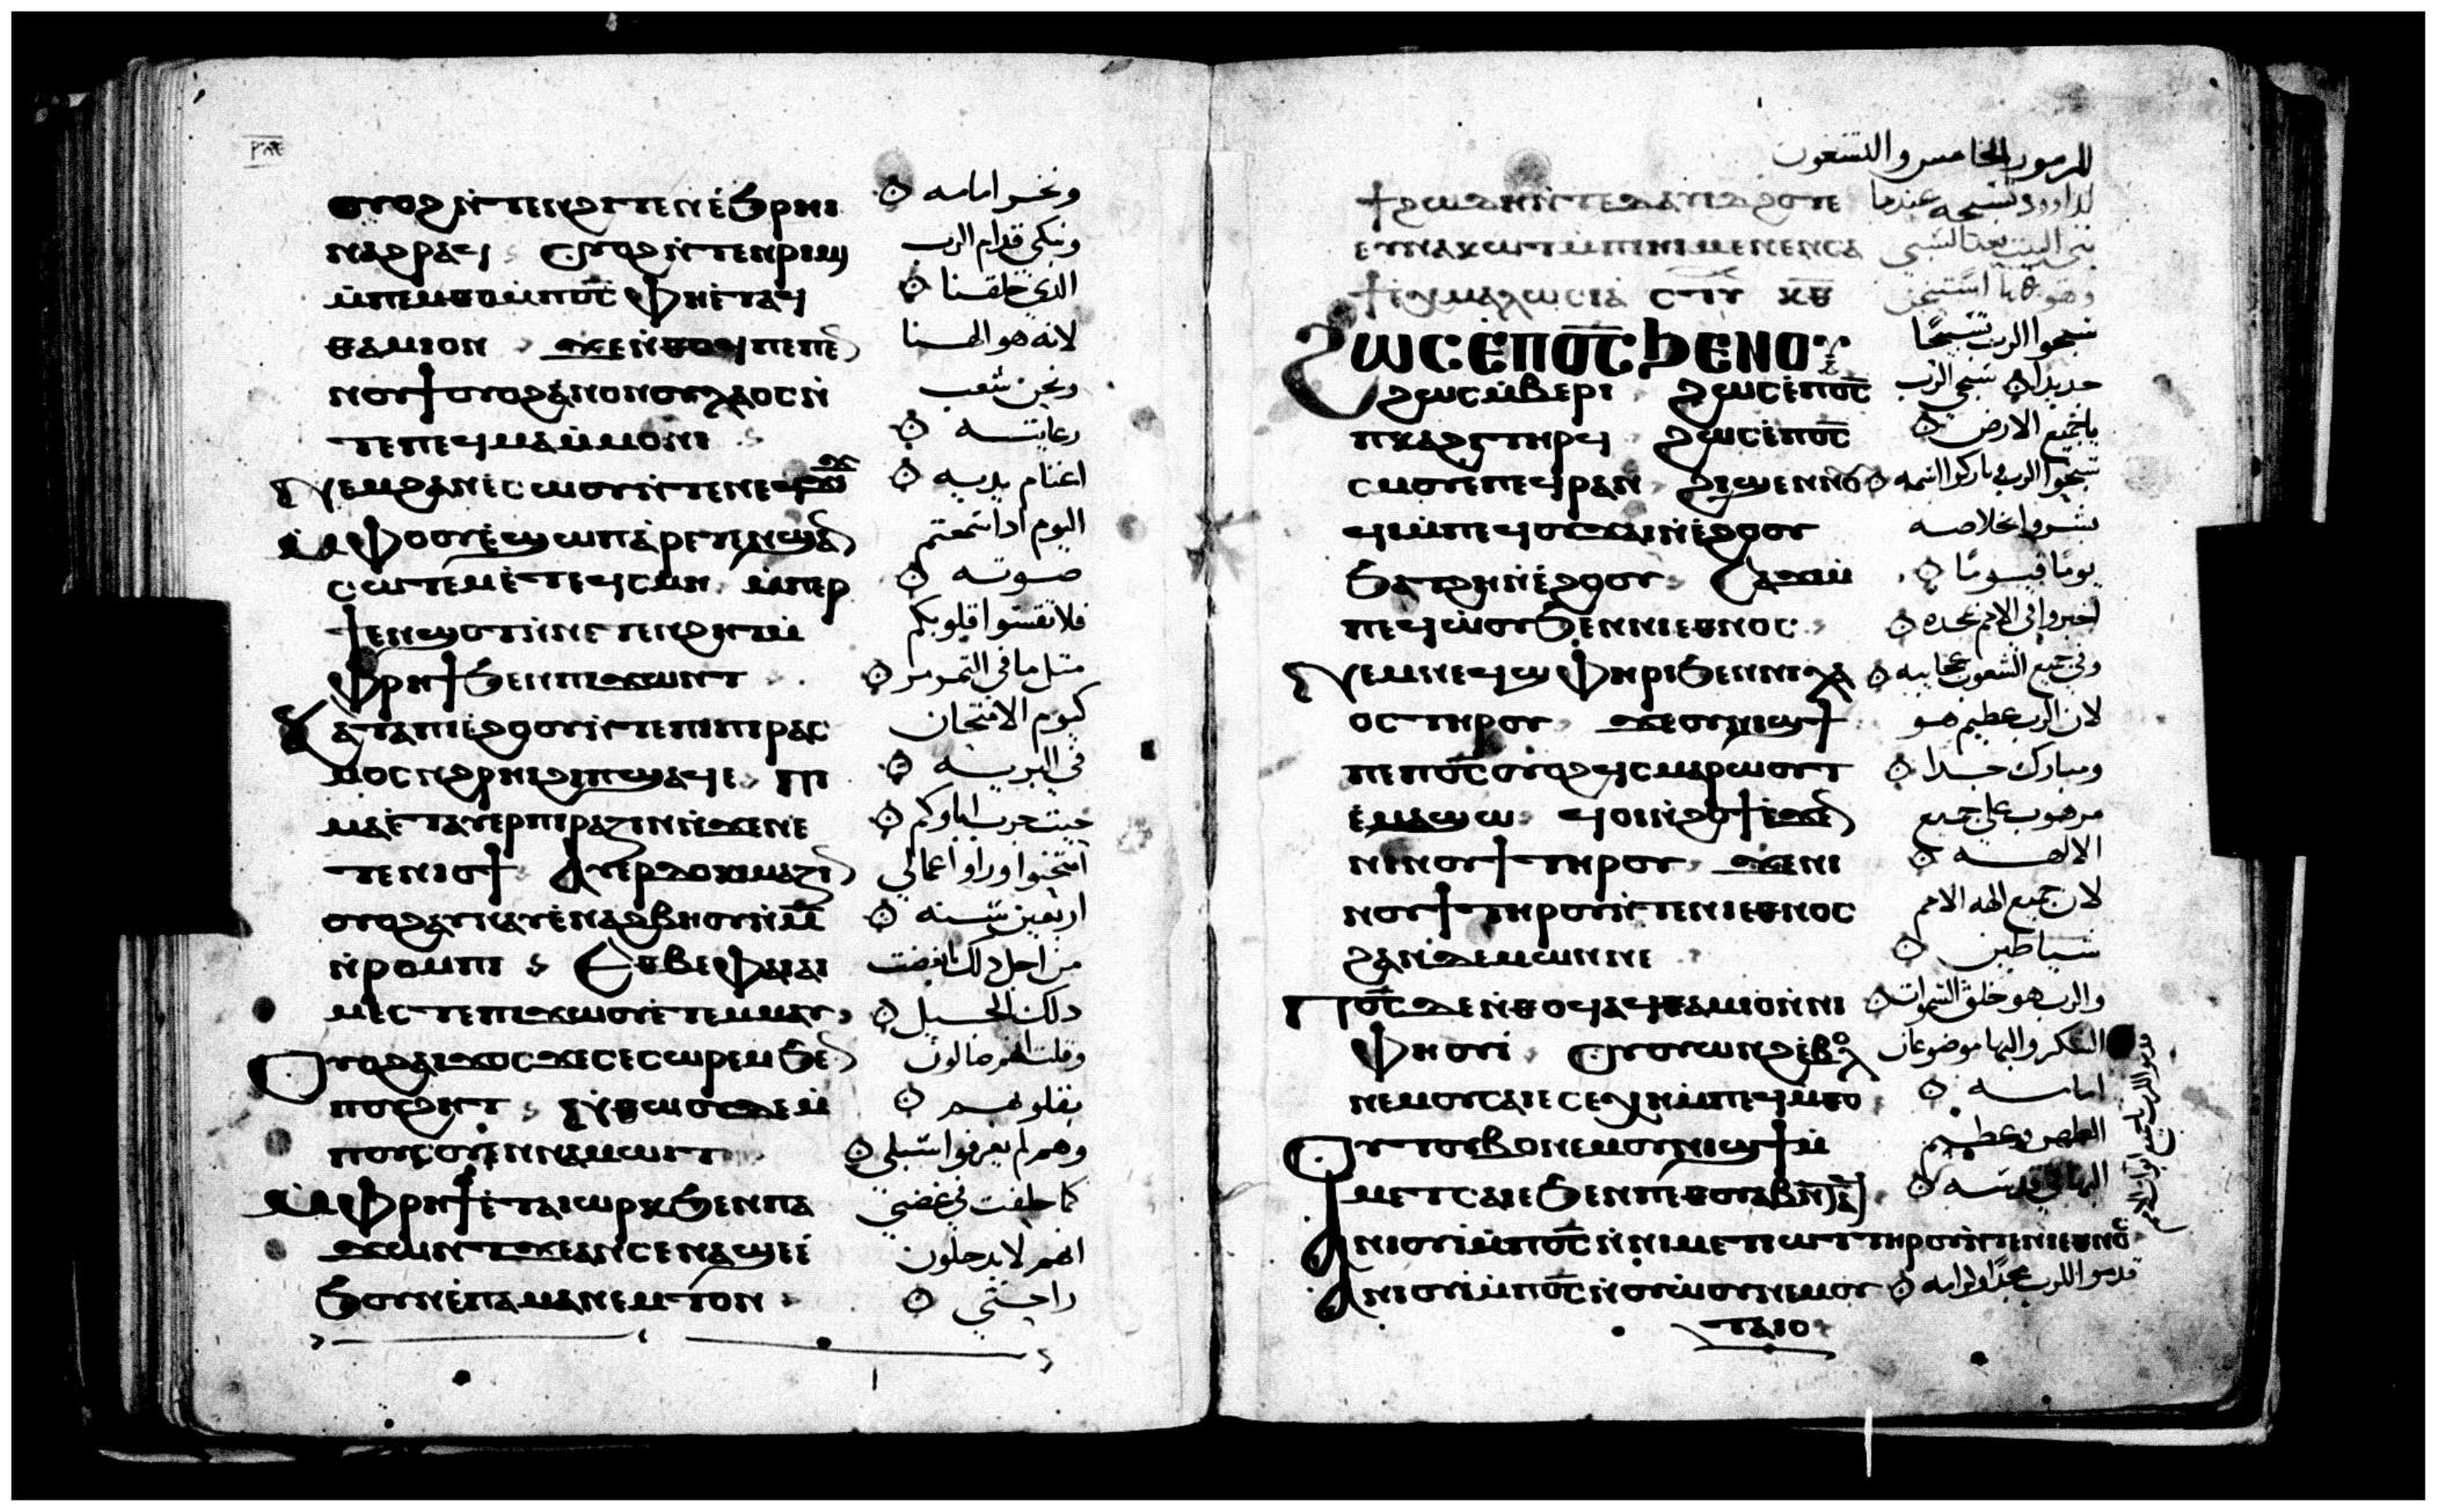 ⲟⲩⲟϩ ⲛ̀ⲧⲉⲛϩⲓⲧⲉⲛ ⲉ̀ϧⲣⲏⲓ
ونخر امامه
ⲛⲁϩⲣⲁϥ ⲟⲩⲟϩ ⲛ̀ⲧⲉⲛⲣⲓⲙⲓ
ونبكي قدام الرب
ⲙ̀ⲡⲉⲙⲑⲟ ⲙ̀ⲡⲟ̅ⲥ̅ ⲫⲏⲉ̀ⲧⲁϥ
الذي خلقنا
ⲑⲁⲙⲓⲟⲛ ϫⲉ ⲛ̀ⲑⲟϥ ⲡⲉ ⲡⲉⲛ
لانه هو الهنا
ⲛⲟⲩϯ ⲟⲩⲟϩ ⲁⲛⲟⲛ ⲟⲩⲗⲁⲟⲥ ⲛ̀
ونحن شعب
ⲧⲉ ⲡⲉϥⲙⲁⲙ̀ⲙⲟⲛⲓ
رعايته
ⲛⲉⲙ ϩⲁⲛⲉ̀ⲥⲱⲟⲩ ⲛ̀ⲧⲉ ⲛⲉϥϫⲓϫ
اغنام يديه
ⲙ̀ⲫⲟⲟⲩ ⲉ̀ϣⲱⲡ ⲁ̀ⲣⲉⲧⲉⲛϣⲁⲛ
اليوم اذا سمعتم
ⲥⲱⲧⲉⲙ ⲉ̀ⲧⲉϥⲥⲙⲏ ⲙ̀ⲡⲉⲣ
صوته
ϯⲉⲛϣⲟⲧ ⲛ̀ⲛⲉⲧⲉⲛϩⲏⲧ ⲙ̀
فلا تقسوا قلوبكم
ⲫⲣⲏϯ ϧⲉⲛ ⲡⲓϫⲱⲛⲧ
مثل ما في التمرمر
ⲕⲁⲧⲁ ⲡⲓⲉ̀ϩⲟⲟⲩ ⲛ̀ⲧⲉ ⲡⲓⲡⲓⲣⲁⲥ
كيوم الامتحان
ⲙⲟⲥ ⲛ̀ϩⲣⲏⲓ ϩⲓ ⲡϣⲁϥⲉ ⲡⲓ
في البريه
ⲙⲁ ⲉ̀ⲧⲁⲩⲉⲣⲡⲓⲣⲁⲍⲓⲛ ⲛ̀ϫⲉ ⲛⲉ
حيث جرب اباوكم
ⲧⲉⲛⲓⲟϯ ⲁⲩⲉⲣⲇⲟⲕⲓⲙⲁⲍⲓⲛ
امتحنوا وراوا اعمالي
ⲟⲩⲟϩ ⲁⲩⲛⲁⲩ ⲉ̀ⲛⲁϩⲃⲏⲟⲩⲓ̀ ⲙ̅
اربعين سنه
ⲛ̀ⲣⲟⲙⲡⲓ ⲉⲑⲃⲉ ⲫⲁⲓ ⲁⲓ
من اجل ذلك ابغضت
ⲙⲉⲥⲧⲉ ⲡⲓϫⲱⲟⲩ ⲉ̀ⲧⲉⲙⲙⲁⲩ
ذلك الجيل
ⲟⲩⲟϩ ⲁⲓϫⲟⲥ ϫⲉ ⲥⲉⲥⲱⲣⲉⲙ ϧⲉⲛ
وقلت انهم ضالون
ⲡⲟⲩϩⲏⲧ ⲛ̀ⲑⲱⲟⲩ ⲇⲉ ⲙ̀
بقلوبهم
ⲡⲟⲩⲥⲟⲩⲉⲛ ⲛⲁⲙⲱⲓⲧ
وهم لم يعرفوا سبلي
ⲙ̀ⲫⲣⲏϯ ⲉ̀ⲧⲁⲓⲱⲣⲕ ϧⲉⲛ ⲡⲁ
كما حلفت في غضبي
ϫⲱⲛⲧ ϫⲉ ⲁⲛ ⲥⲉⲛⲁϣⲉ̀ ⲉ̀
انهم لا يدخلون
ϧⲟⲩⲛ ⲉ̀ⲡⲁⲙⲁⲛⲉⲙⲧⲟⲛ
راحتي
المزمور الخامس والتسعون
ϯϩⲱⲇⲏ ⲛ̀ⲧⲉ ⲇⲁⲩⲓⲇ ϩⲟⲧⲉ
لداوود تسبحه عندما
ⲉⲩⲛⲁⲕⲱⲧ ⲙ̀ⲡⲓⲏⲓ ⲙⲉⲛⲉⲛⲥⲁ
بني البيت بعد السبي
ϯⲉⲭⲙⲁⲗⲱⲥⲓⲁ ⲥⲧⲩ ⲕ̅ⲃ̅
ϩⲱⲥ ⲉ̀ⲡⲟ̅ⲥ̅ ϧⲉⲛ ⲟⲩ
سبحوا الرب تسبيحًا
ϩⲱⲥ ⲙ̀ⲃⲉⲣⲓ ϩⲱⲥ ⲉ̀ⲡⲟ̅ⲥ̅
جديدا سبحي الرب
ⲡⲕⲁϩⲓ ⲧⲏⲣϥ ϩⲱⲥ ⲉ̀ⲡⲟ̅ⲥ̅
يا جميع الارض
ⲥⲙⲟⲩ ⲉ̀ⲡⲉϥⲣⲁⲛ ϩⲓϣⲉⲛⲛⲟⲩ
سبحوا الرب وباركوا اسمه
ϥⲓ ⲙ̀ⲡⲉϥⲟⲩϫⲁⲓ ⲛ̀ⲉ̀ϩⲟⲟⲩ
بشروا بخلاصه
ϧⲁⲧϩⲏ ⲛ̀ⲉ̀ϩⲟⲟⲩ ⲥⲁϫⲓ ⲙ̀
يومًا فيومًا
ⲡⲉϥⲱ̀ⲟⲩ ϧⲉⲛ ⲛⲓⲉⲑⲛⲟⲥ
اخبروا في الامم بمجده
ⲛⲉⲙ ⲛⲉϥϣⲫⲏⲣⲓ ϧⲉⲛ ⲛⲓⲗⲁ
وفي جميع الشعوب عجايبه
ⲟⲥ ⲧⲏⲣⲟⲩ ϫⲉ ⲟⲩⲛⲓϣϯ
لان الرب عظيم هو
ⲡⲉ ⲡⲟ̅ⲥ̅ ⲟⲩⲟϩ ϥⲥⲙⲁⲣⲱⲟⲩⲧ
ومبارك جدا
ⲉ̀ⲙⲁϣⲱ ϥⲟⲓ ⲛ̀ϩⲟϯ ⲉ̀ϫⲉⲛ
مرهوب على جميع
ⲛⲓⲛⲟⲩϯ ⲧⲏⲣⲟⲩ ϫⲉ ⲛⲓ
الالهه
ⲛⲟⲩϯ ⲧⲏⲣⲟⲩ ⲛ̀ⲧⲉ ⲛⲓⲉⲑⲛⲟⲥ
لان جميع الهه الامم
ϩⲁⲛⲇⲉⲙⲱⲛ ⲛⲉ
شياطين
ⲡⲟ̅ⲥ̅ ⲇⲉ ⲛ̀ⲑⲟϥ ⲁϥⲑⲁⲙⲓⲟ ⲛ̀ⲛⲓ
والرب هو خلق السموات
ⲫⲏⲟⲩⲓ̀ ⲟⲩⲟⲩⲱⲛϩ ⲉ̀ⲃⲟⲗ
الشكر والبها موضوعان
ⲛⲉⲙ ⲟⲩⲥⲁⲓⲉ ⲥⲉⲭⲏ ⲙ̀ⲡⲉϥⲙ̀ⲑⲟ
امامه
ⲟⲩⲧⲟⲩⲃⲟ ⲛⲉⲙ ⲟⲩⲛⲓϣϯ ⲙ̀
الطهر وعظيم
ⲙⲉⲧⲥⲁⲓⲉ ϧⲉⲛ ⲡⲉⲑⲟⲩⲁⲃ ⲛ̀ⲧⲁϥ
البها في قدسه
ⲁⲛⲓⲟⲩⲓ̀ ⲙ̀ⲡⲟ̅ⲥ̅ ⲛ̀ⲛⲓⲙⲉⲧⲓⲱⲧ ⲧⲏⲣⲟⲩ ⲛ̀ⲧⲉ ⲛⲓⲉⲑⲛⲟⲥ
ⲁⲛⲓⲟⲩⲓ̀ ⲙ̀ⲡⲟ̅ⲥ̅ ⲛ̀ⲟⲩⲱ̀ⲟⲩ ⲛⲉⲙ ⲟⲩ
قدموا للرب مجدًا وكرامه
ⲧⲁⲓⲟ